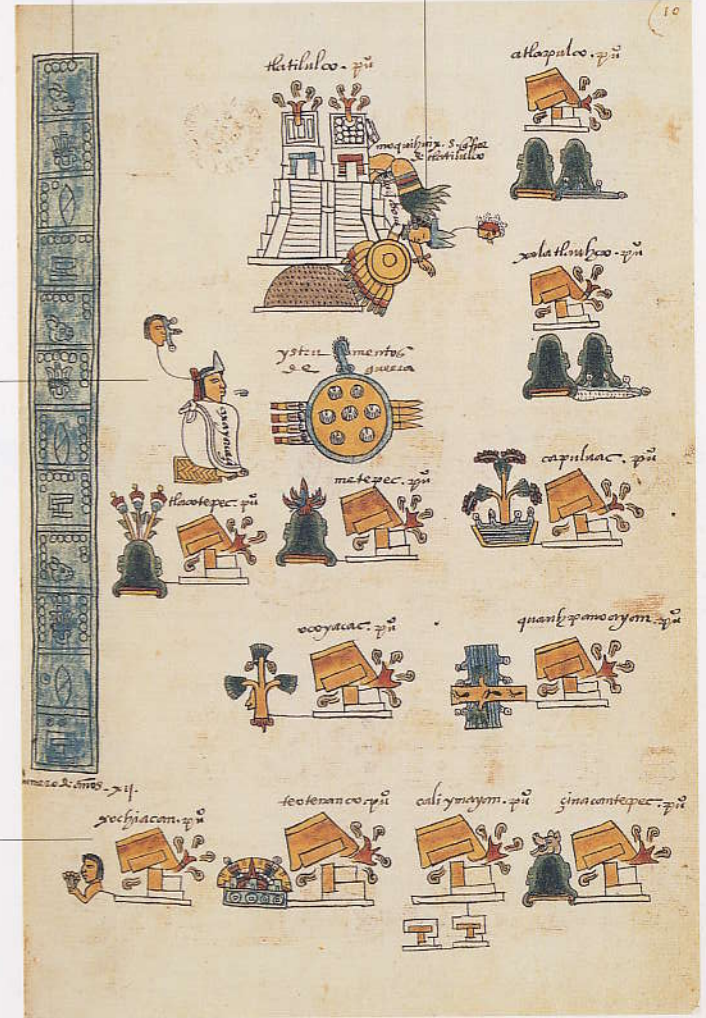 10
tlatilulco. pũ
atlapulco. pũ
moquihuix. señor
de tlatilulco
xalatlauhco. pũ
ystru mentos
de guerra
axayacaçi
capuluac. pũ
metepec. pũ
tlacotepec. pũ
ocoyacac. pũ
quauhpanoayan. pũ
numero de años. xij.
xochiacan. pũ
teotenanco. pũ
caliymayan. pũ
çinacantepec. pũ